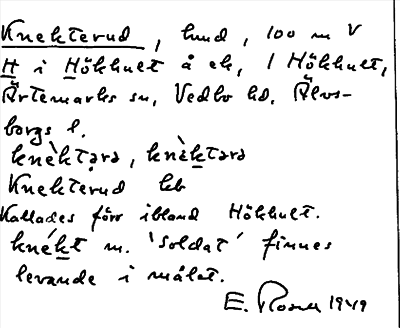 Knekterud, lund, 100 m V
H i Hökhult å ek, 1 Hökhult,
Ärtemarks sn, Vedbo hd, Älvs-
borgs l.
knèktərə, knèktərə
Knekterud kb
Kallades förr ibland Hökhult.
knékt m. 'soldat' finnes
levande i målet.
E. 1949